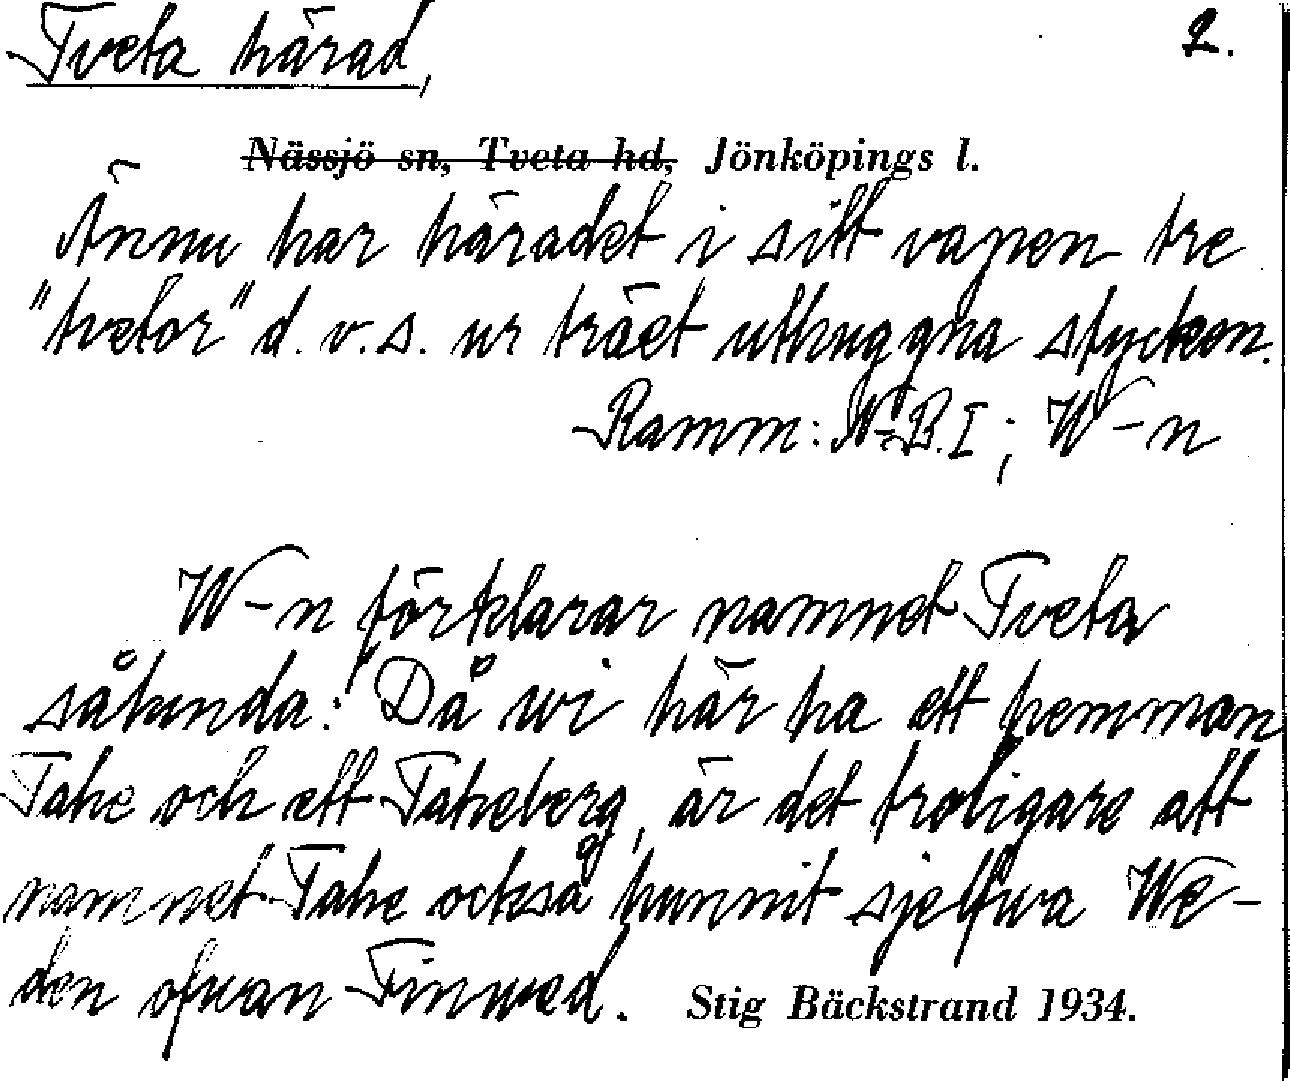 Tveta härad, 2.
Nässjö sn, Tveta hd, Jönköpings l.
Ännu har häradet i sitt vapen tre
"tvetor" d.v.s. ur träet uthuggna stycken.
Ramm: N.B.I; W-n
W-n förklarar namnet Tveta
sålunda: "Då wi här ha ett hemman
Tahe och ett Taheberg, är det troligare att
namnet Tahe också hunnit sjelfwa We-
den ofwan Finwed. Stig Bäckstrand 1934.